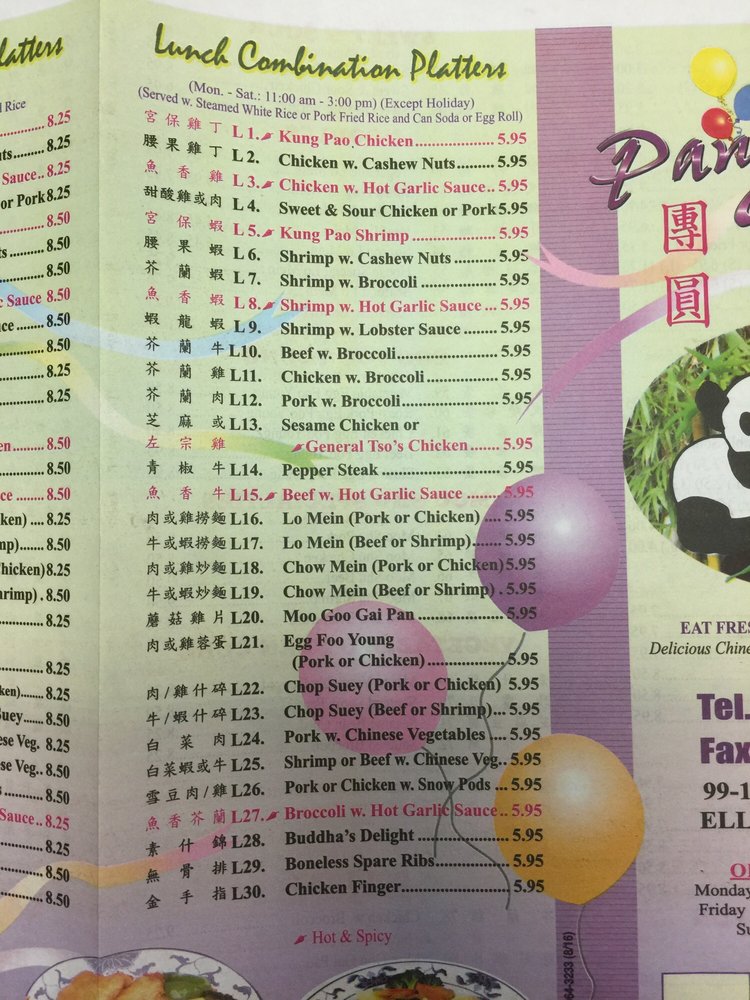 latters
Rice
8.25
ts 8.25
Sauce.. 8.25
or Pork 8.25
8.50
ts 8.50
8.50
c Sauce 8.50
ce 8.50
8.50
8.25
8.25
en 8.50
8.50
ce 8.50
ken) .... 8.25
mp) 8.50
hicken) 8.25
hrimp) . 8.50
8.25
8.25
ken) 8.25
Suey 8.50
ese Veg. 8.25
se Veg.. 8.50
8.50
Sauce.. 8.25
8.25
8.50
8.50
Lunch Combination Platters
(Mon. - Sat.: 11:00 am - 3:00 pm) (Except Holiday)
(Served w. Steamed White Rice or Pork Fried Rice and Can Soda or Egg Roll)
宮保雞丁 L 1. Kung Pao Chicken 5.95
腰果雞丁 L 2. Chicken w. Cashew Nuts 5.95
魚香雞 L 3. Chicken w. Hot Garlic Sauce .. 5.95
甜酸雞或肉 L 4. Sweet & Sour Chicken or Pork 5.95
宮保蝦 L 5. Kung Pao Shrimp 5.95
腰果蝦 L 6. Shrimp w. Cashew Nuts 5.95
芥蘭蝦 L 7. Shrimp w. Broccoli 5.95
魚香蝦 L 8. Shrimp w. Hot Garlic Sauce ... 5.95
蝦龍蝦 L 9. Shrimp w. Lobster Sauce 5.95
芥蘭牛 L10. Beef w. Broccoli 5.95
芥蘭雞 L11. Chicken w. Broccoli 5.95
芥蘭肉 L12. Pork w. Broccoli 5.95
芝麻或 L13. Sesame Chicken or
左宗雞 General Tso's Chicken 5.95
青椒牛 L14. Pepper Steak 5.95
魚香牛 L15. Beef w. Hot Garlic Sauce 5.95
肉或雞撈麵 L16. Lo Mein (Pork or Chicken) .... 5.95
牛或蝦撈麵 L17. Lo Mein (Beef or Shrimp) 5.95
肉或雞炒麵 L18. Chow Mein (Pork or Chicken) 5.95
牛或蝦炒麵 L19. Chow Mein (Beef or Shrimp) . 5.95
蘑菇雞片 L20. Moo Goo Gai Pan 5.95
肉或雞蓉蛋 L21. Egg Foo Young
(Pork or Chicken) 5.95
肉/雞什碎 L22. Chop Suey (Pork or Chicken) 5.95
牛/蝦什碎 L23. Chop Suey (Beef or Shrimp)... 5.95
白菜肉 L24. Pork w. Chinese Vegetables .... 5.95
白菜蝦或牛 L25. Shrimp or Beef w. Chinese Veg.. 5.95
雪豆肉/雞 L26. Pork or Chicken w. Snow Pods ... 5.95
魚香芥蘭 L27. Broccoli w. Hot Garlic Sauce .. 5.95
素什錦 L28. Buddha's Delight 5.95
無骨排 L29. Boneless Spare Ribs 5.95
金手指 L30. Chicken Finger 5.95
Hot & Spicy
64-3233 (8/16)
Pan
團
圓
EAT FRES
Delicious Chine
Tel.
Fax
99-1
ELL
O
Monday
Friday
Su